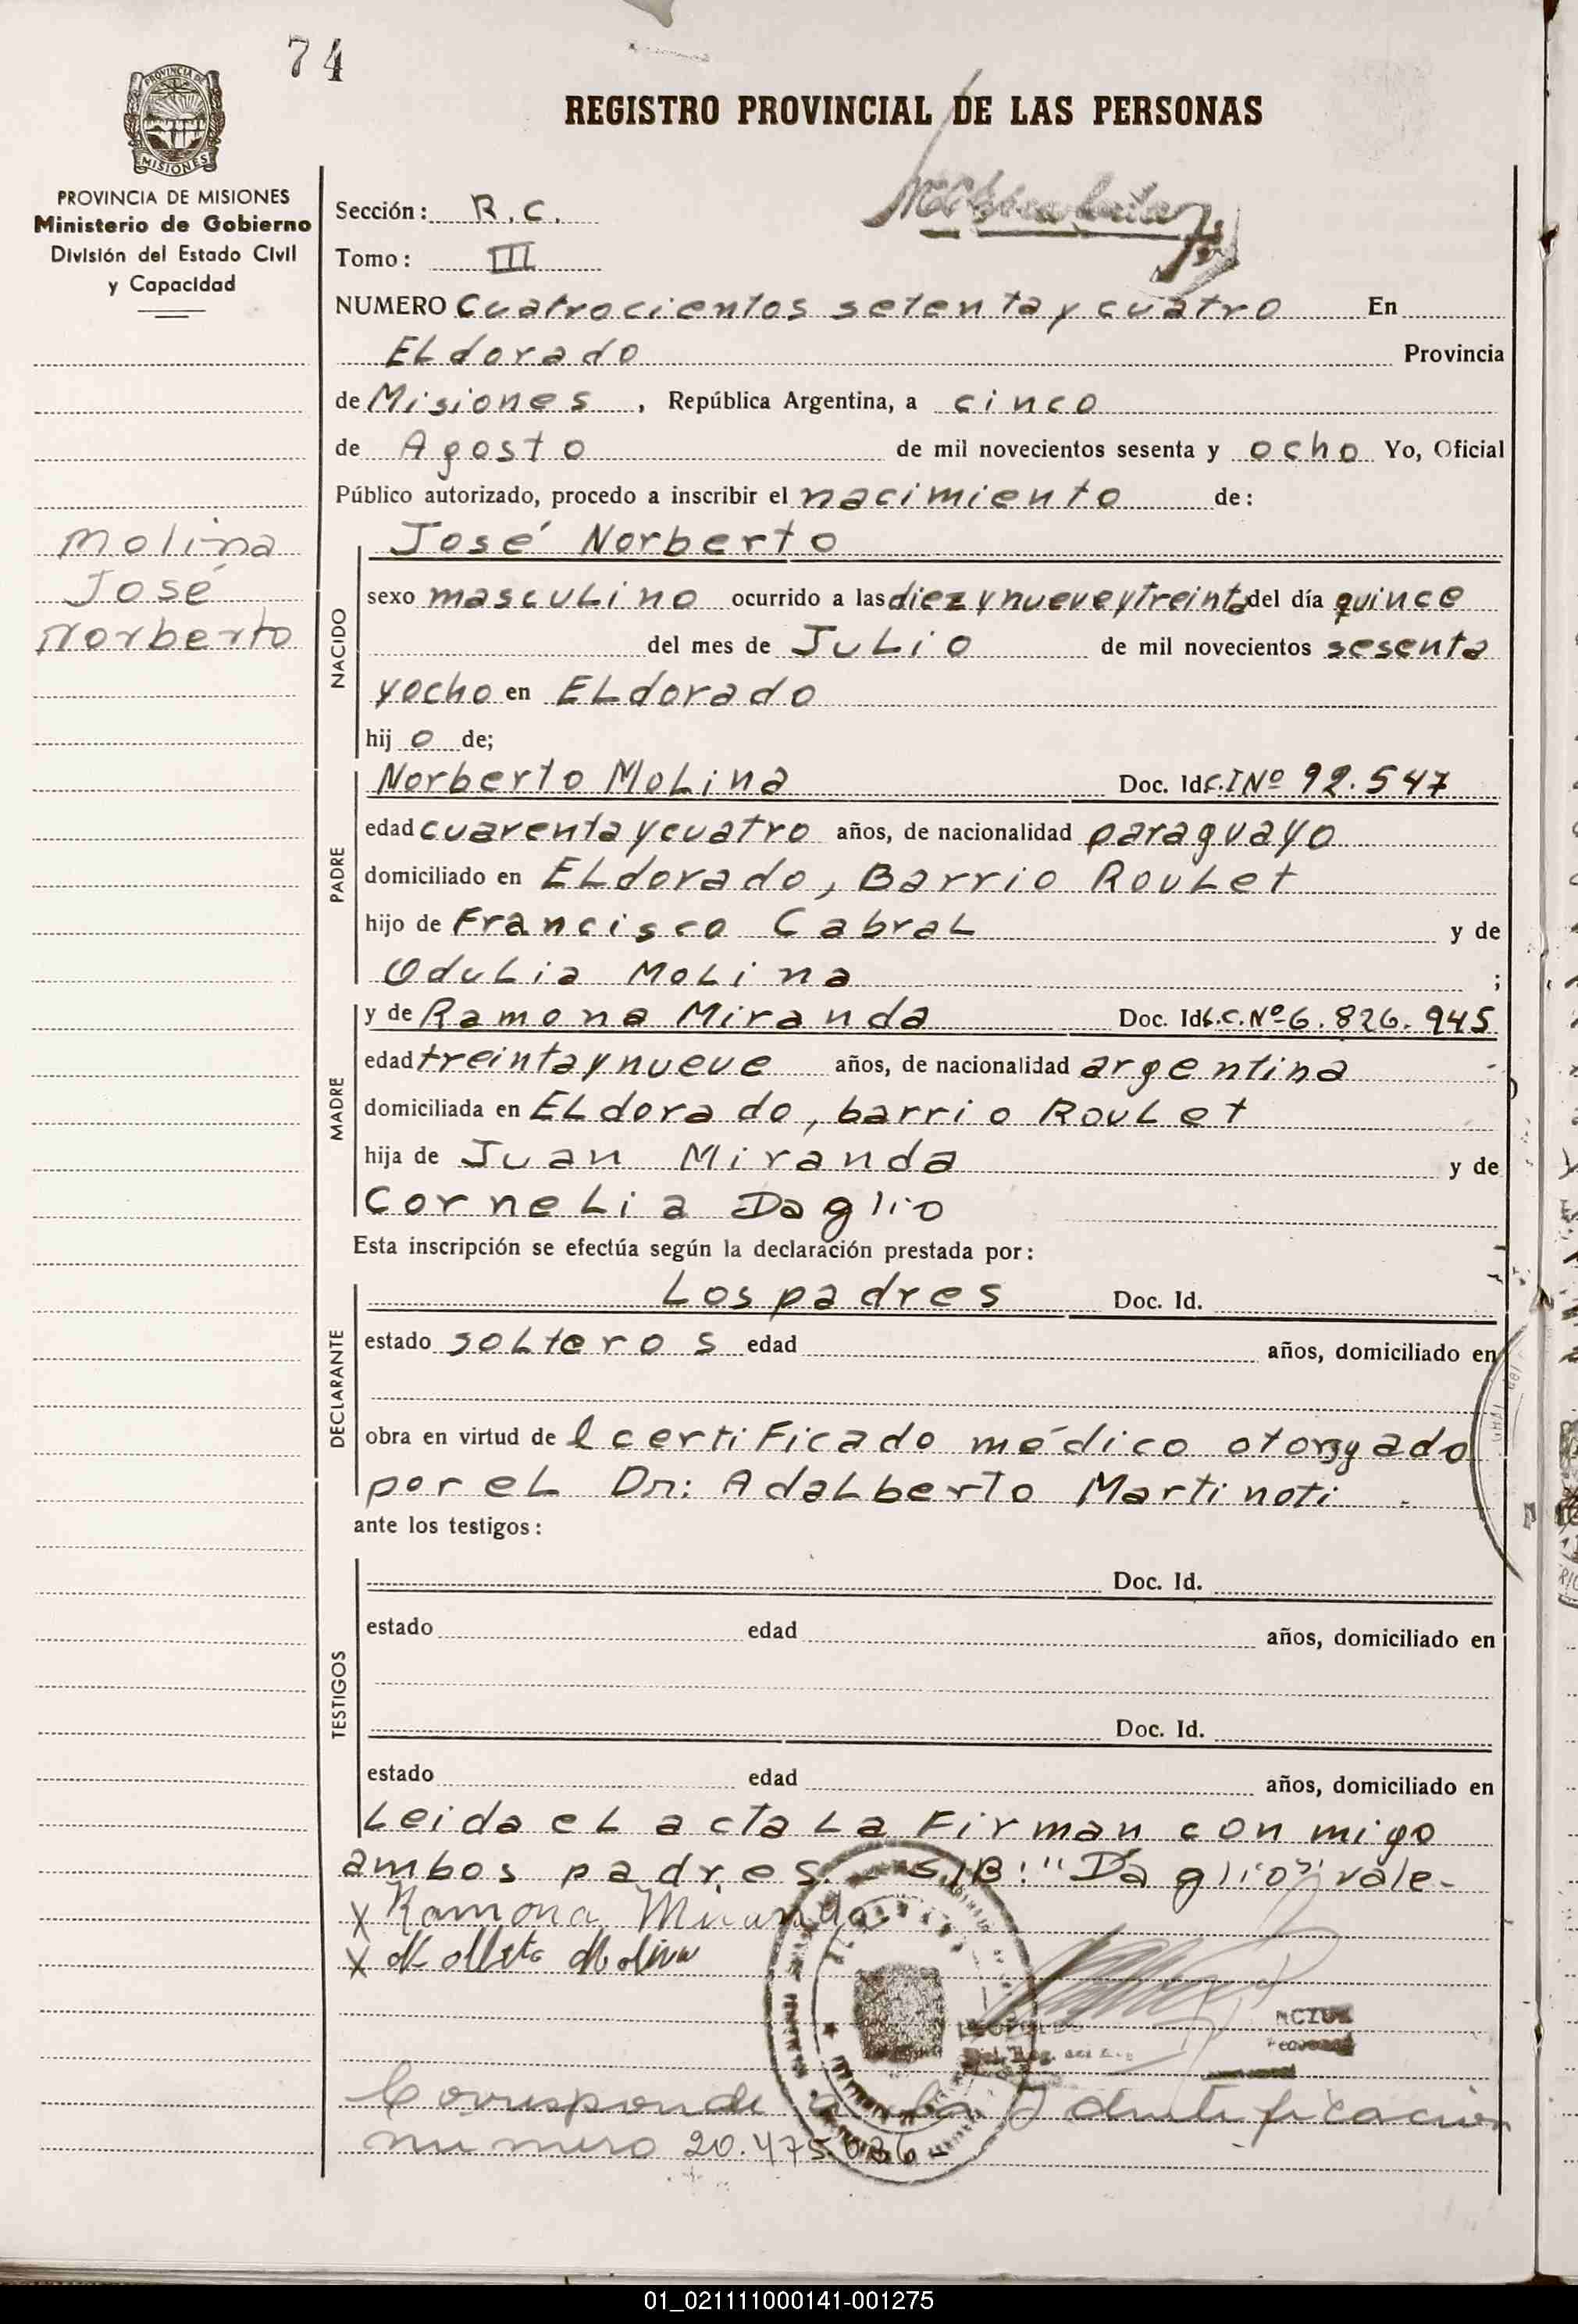 74
PROVINCIA DE
MISIONES
PROVINCIA DE MISIONES
Ministerio de Gobierno
División del Estado Civil
y Capacidad
REGISTRO PROVINCIAL DE LAS PERSONAS
Sección: R.C.
Tomo: III
NUMERO Cuatrocientos setenta y cuatro En
ELdorado Provincia
de Misiones, República Argentina, a cinco
de Agosto de mil novecientos sesenta y ocho Yo, Oficial
Público autorizado, procedo a inscribir el nacimiento de:
Molina
José
Norberto
NACIDO
José Norberto
sexo mascuLino ocurrido a las diez y nueve y treinta del día quince
del mes de JuLio de mil novecientos sesenta
y ocho en ELdorado
hijo de;
PADRE
Norberto MoLina Doc. Id. C.I Nº 92.547
edad cuarenta y cuatro años, de nacionalidad paraguayo
domiciliado en ELdorado, Barrio RouLet
hijo de Francisco CabraL y de
OduLia MoLina ;
MADRE
y de Ramona Miranda Doc. Id L.C. Nº 6.826.945
edad treinta y nueve años, de nacionalidad argentina
domiciliada en ELdorado, barrio RouLet
hija de Juan Miranda y de
CorneLia Daglio
Esta inscripción se efectúa según la declaración prestada por:
DECLARANTE
Los padres Doc. Id.
estado soLteros edad años, domiciliado en
obra en virtud de l certiFicado médico otorgado
por eL Dr: AdaLberto Martinoti
ante los testigos:
TESTIGOS
Doc. Id.
estado edad años, domiciliado en
Doc. Id.
estado edad años, domiciliado en
Leida eL acta La Firman con migo
ambos padres.- S/B: "Daglio": vale-
x Ramona Miranda
x Molina
Corresponde a la Identificación
numero 20.475.
01_021111000141-001275